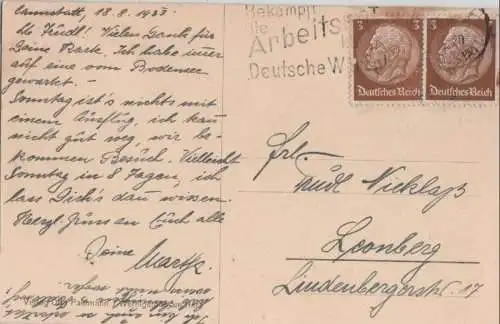 Cannstatt, 18.8.1933
Lb. Trudl! Vielen Dank für
Deine Karte. Ich habe immer
auf eine vom Bodensee
gewartet.-
Sonntag ist's nichts mit
einem Ausflug, ich kann
nicht gut weg, wir be-
kommen Besuch. Vielleicht
Sonntag in 8 Tagen, ich
lass Dich's dann wissen.
Herzl. Grüsse an Euch alle
Deine
Martha
Bekämpft
die
Arbeits
Deutsche W
3
3
Deutsches Reich
Deutsches Reich
Frl.
Trudl Nicklaß
Leonberg
Lindenbergerstr. 17